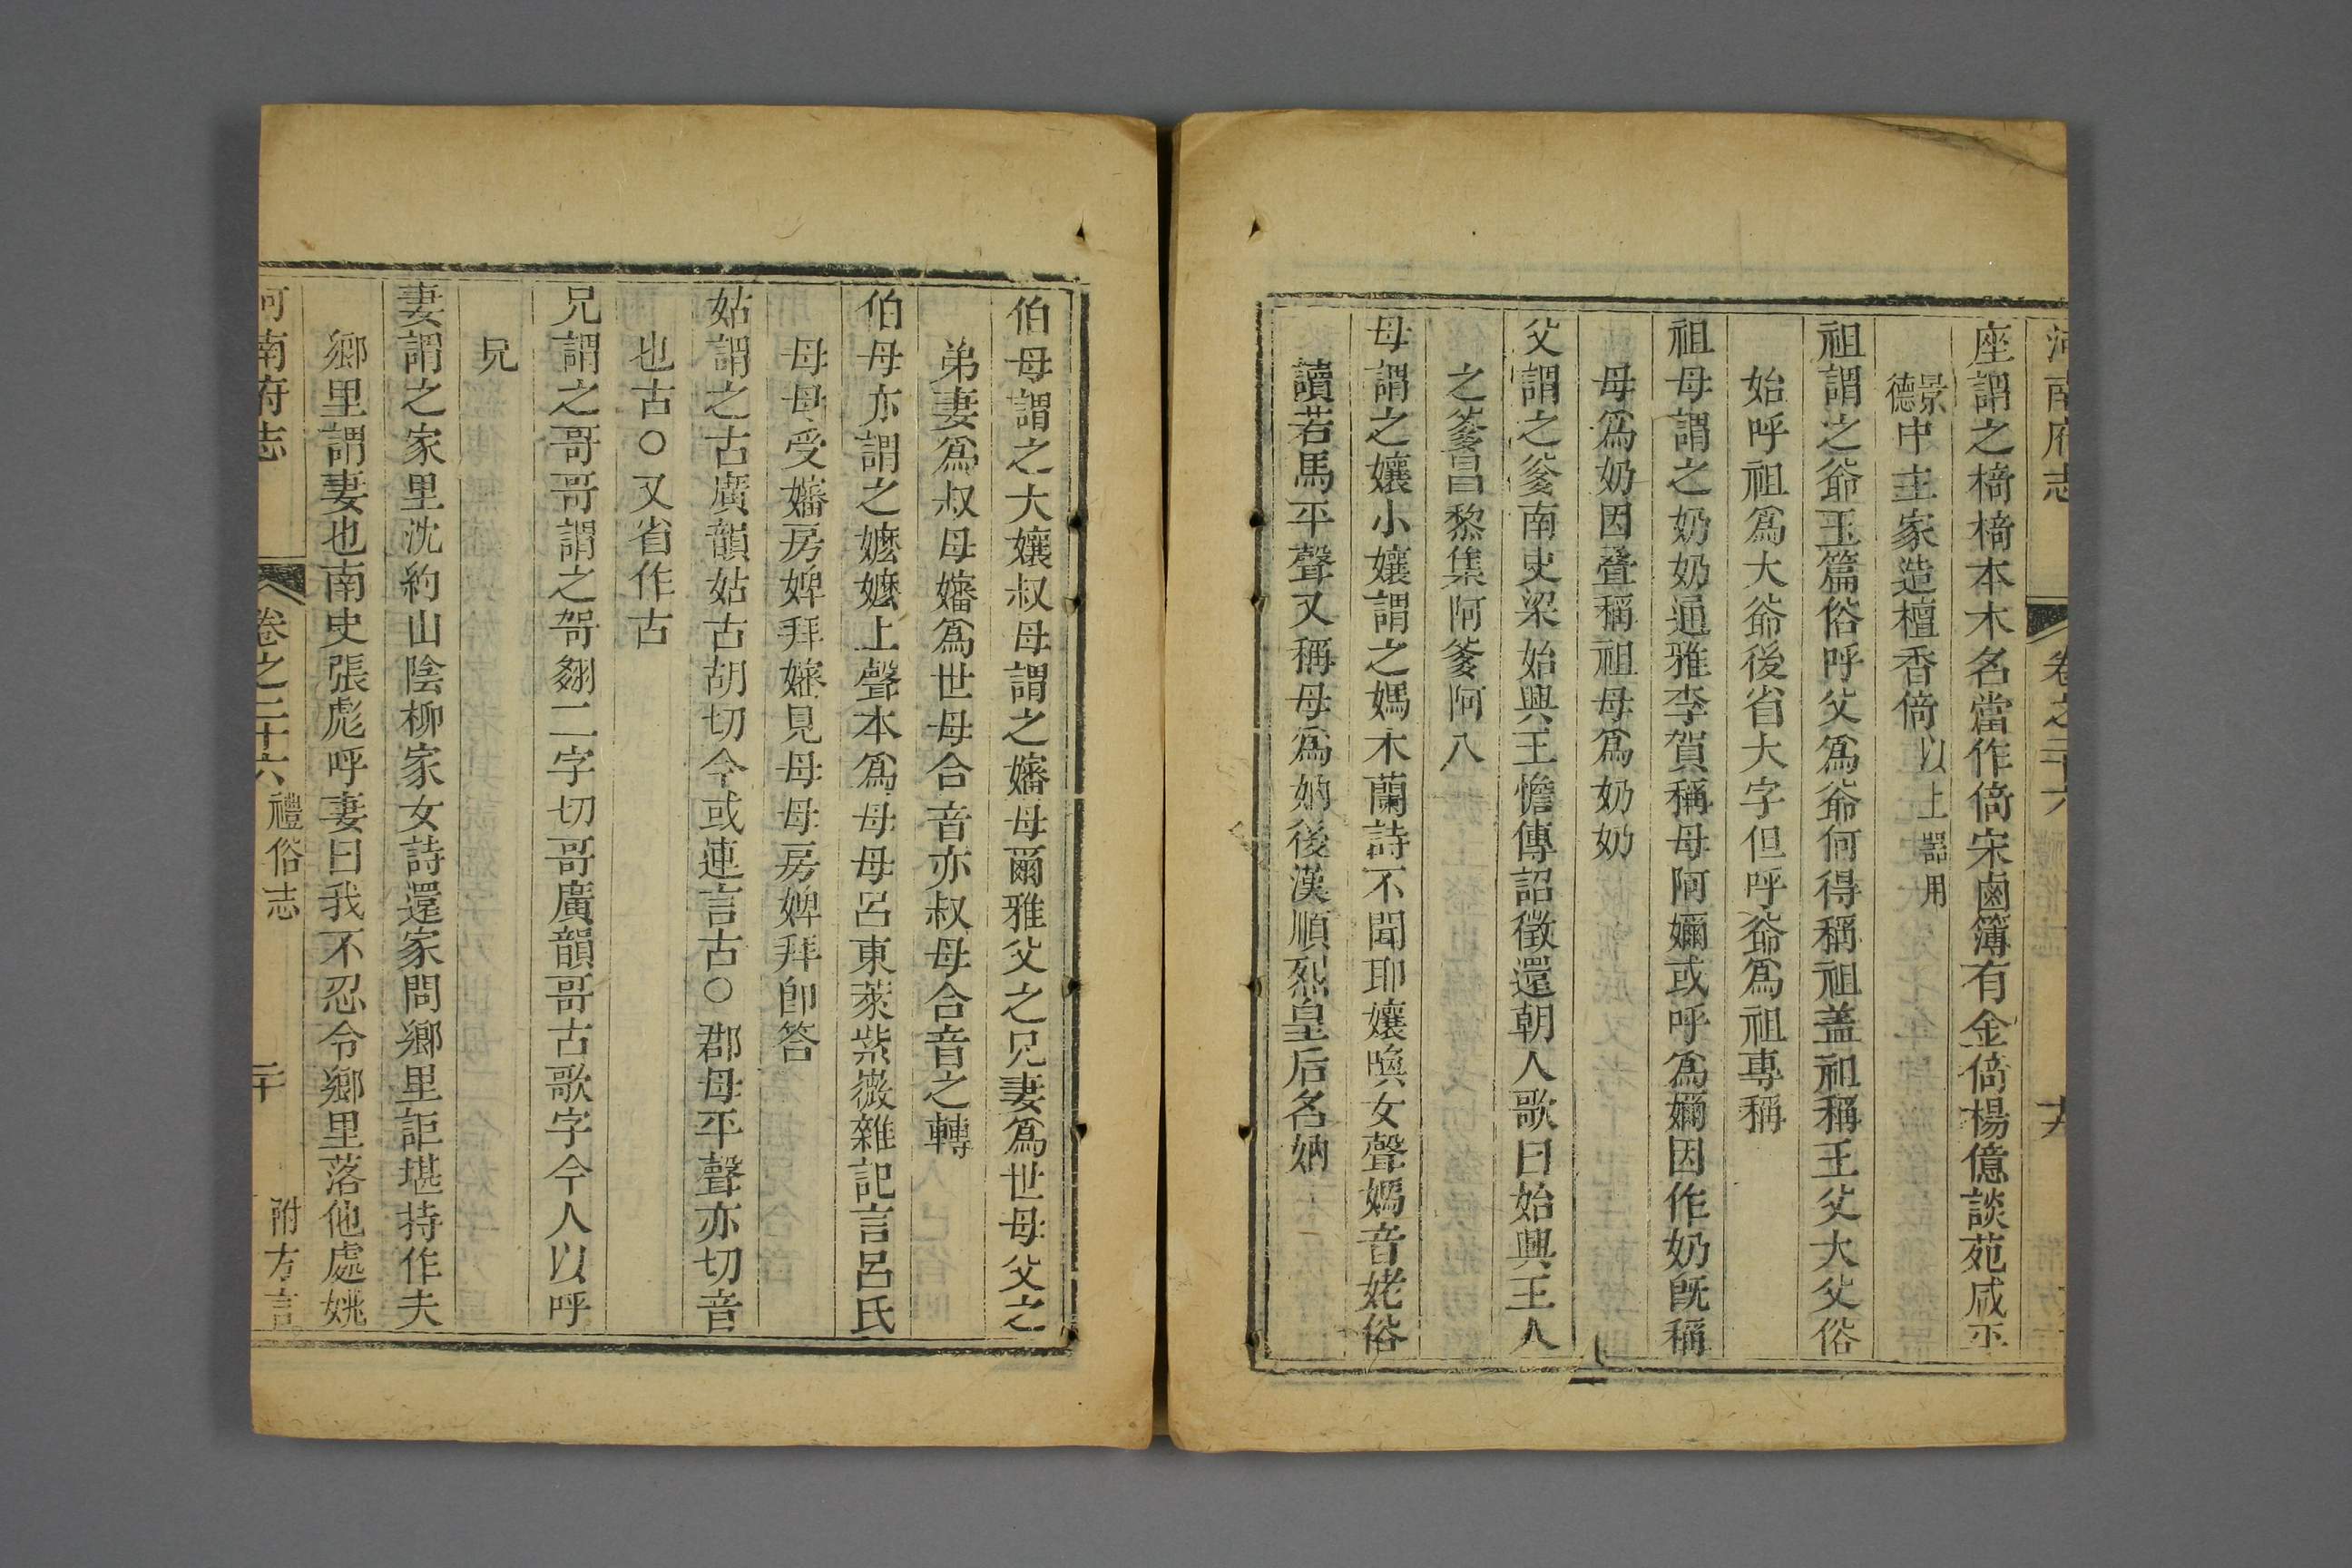 河南府志 卷之二十六 十九
座謂之椅椅本木名當作倚宋鹵簿有金倚楊億談苑咸平
景德中主家造檀香倚以上器用
祖謂之爺玉篇俗呼父爲爺何得稱祖蓋祖稱王父大父俗
始呼祖爲大爺後省大字但呼爺爲祖專稱
祖母謂之奶奶奶通雅李賀稱母阿㜷或呼爲㜷因作奶旣稱
母爲奶因疊稱祖母爲奶奶
父謂之爹南史梁始興王憺傳詔徵還朝人歌曰始興王人
之爹昌黎集阿爹阿八
母謂之孃小孃謂之媽木蘭詩不聞耶孃喚女聲媽音姥俗
讀若馬平聲又稱母爲妠後漢順烈皇后名妠
伯母謂之大孃叔母謂之嬸母爾雅父之兄妻爲世母父之
弟妻爲叔母嬸爲世母合音亦叔母合音之轉
伯母亦謂之嬤嬤上聲本爲母母呂東萊紫薇雜記言呂氏
母母受嬸房婢拜嬸見母母房婢拜卽答
姑謂之古廣韻姑古胡切今或連言古○郡母平聲亦切音
也古○又省作古
兄謂之哥哥謂之哿翗二字切哥廣韻哥古歌字今人以呼
兄
妻謂之家里沈約山陰柳家女詩還家問鄉里詎堪持作夫
鄉里謂妻也南史張彪呼妻曰我不忍令鄉里落他處姚
河南府志 卷之二十六 禮俗志 二十 附方言